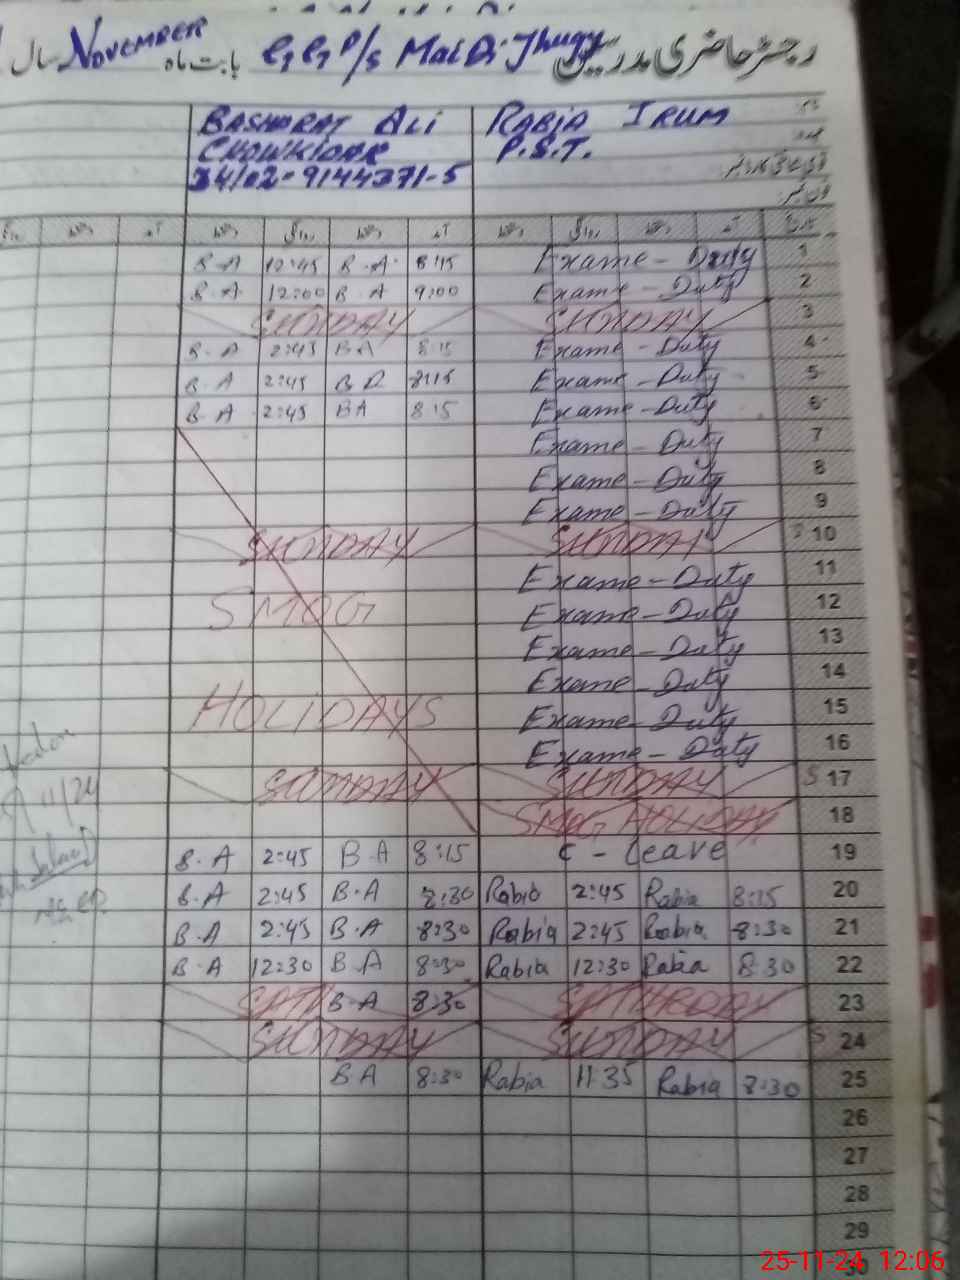 رجسٹر حاضری مدرسین G G P/S Mai Di Jhugy بابت ماہ NOVEMBER سال
RABIA IRUM BASHARAT ALI
P.S.T. CHOWKIDAR
34102-9144371-5
فون نمبر
تاریخ آمد دستخط روانگی دستخط آمد دستخط روانگی دستخط آمد دستخط
1 Exame - Duty 8:15 B.A 10:45 B.A
2 Exame - Duty 9:00 B.A 12:00 B.A
3 SUNDAY SUNDAY
4 Exame - Duty 8:15 BA 2:45 B.A
5 Exame - Duty 8:15 B.A 2:45 B.A
6 Exame - Duty 8:15 BA 2:45 B.A
7 Exame - Duty
8 Exame - Duty
9 Exame - Duty
10 SUNDAY SUNDAY
11 Exame - Duty
12 Exame - Duty SMOG
13 Exame - Duty
14 Exame - Duty
15 Exame - Duty HOLIDAYS
16 Exame - Duty
S 17 SUNDAY SUNDAY
18 SMOG HOLIDAY
19 C - Leave 8:15 B.A 2:45 B.A
20 8:15 Rabia 2:45 Rabia 8:30 B.A 2:45 B.A
21 8:30 Rabia 2:45 Rabia 8:30 B.A 2:45 B.A
22 8:30 Rabia 12:30 Rabia 8:30 B.A 12:30 B.A
23 SATURDAY 8:30 B.A SAT
S 24 SUNDAY SUNDAY
25 8:30 Rabia 11:35 Rabia 8:30 BA
26
27
28
29
30
11/24
25-11-24 12:06